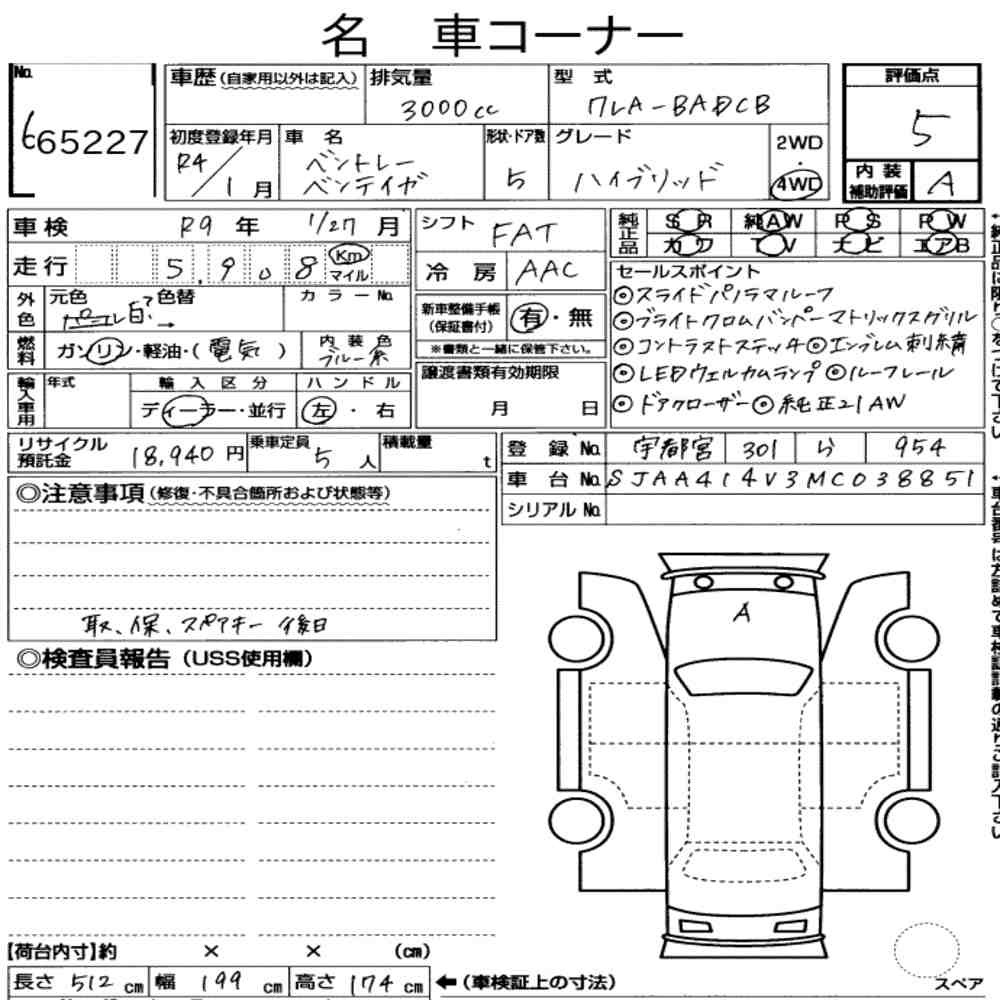 名 車コーナー
No.
665227
車歴(自家用以外は記入)
排気量
3000cc
型 式
7LA-BADCB
評価点
5
初度登録年月
R4/1月
車 名
ベントレー
ベンテイガ
形状・ドア数
5
グレード
ハイブリッド
2WD
・
4WD
内 装
補助評価
A
車検 R9年 1/27月
走行 5,908 Km マイル
シフト FAT
冷 房 AAC
純正品
SR 純AW PS PW
カワ TV ナビ エアB
セールスポイント
◎スライドパノラマルーフ
◎ブライトクロムバンパーマトリックスグリル
◎コントラストステッチ◎エンブレム刺繍
◎LEDウェルカムランプ◎ルーフレール
◎ドアクローザー◎純正21AW
外色
元色 色替
パール白?→
カラーNo.
燃料
ガソリン・軽油・(電気)
内装色
ブルー系
新車整備手帳
(保証書付)
有・無
※書類と一緒に保管下さい。
輸入車用
年式
輸入区分
ディーラー・並行
ハンドル
左・右
譲渡書類有効期限
月 日
リサイクル
預託金
18,940円
乗車定員
5人
積載量
t
登 録 No. 宇都宮 301 ら 954
車 台 No. SJAA414V3MC038851
シリアル No.
◎注意事項(修復・不具合箇所および状態等)
取、保、スペアキー後日
◎検査員報告(USS使用欄)
A
【荷台内寸】約 × × (cm)
長さ 512 cm 幅 199 cm 高さ 174 cm
←(車検証上の寸法)
スペア